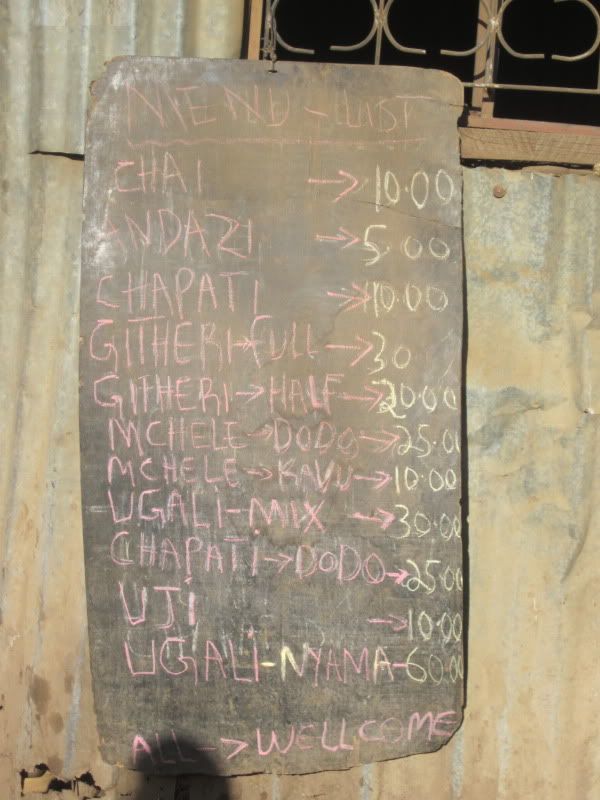 MENU - LIST
CHAI → 10.00
ANDAZI → 5.00
CHAPATI → 10.00
GITHERI → FULL → 30
GITHERI → HALF → 20.00
MCHELE → DODO → 25.00
MCHELE → KAVU → 10.00
UGALI - MIX → 30.00
CHAPATI → DODO → 25.00
UJI → 10.00
UGALI - NYAMA - 60.00
ALL → WELLCOME